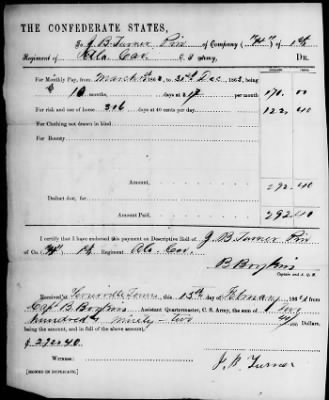 THE CONFEDERATE STATES,
To J B Turner Priv of Company ("H") of 1st
Regiment of Ala Cav. C S Army, DR.
For Monthly Pay, from March 1st 1862, to 31st Dec, 1862, being
10 months, days at $17 per month 170. 00
For risk and use of horse 306 days at 40 cents per day, 122. 40
For Clothing not drawn in kind
For Bounty
Amount, 292.40
Deduct due, for
Amount Paid, 292.40
I certify that I have endorsed this payment on Descriptive Roll of J B Turner Priv
of Co. "H" Regiment Ala Cav.
B Boykin
Captain and A. Q. M.
Received at this 15th day of 186 of
Capt B Boykin Assistant Quartermaster, C. S. Army, the sum of Two
hundred & ninety-two 40/100 Dollars,
being the amount, and in full of the above account,
$ 292.40
Witness:
[SIGNED IN DUPLICATE.]
J. B Turner